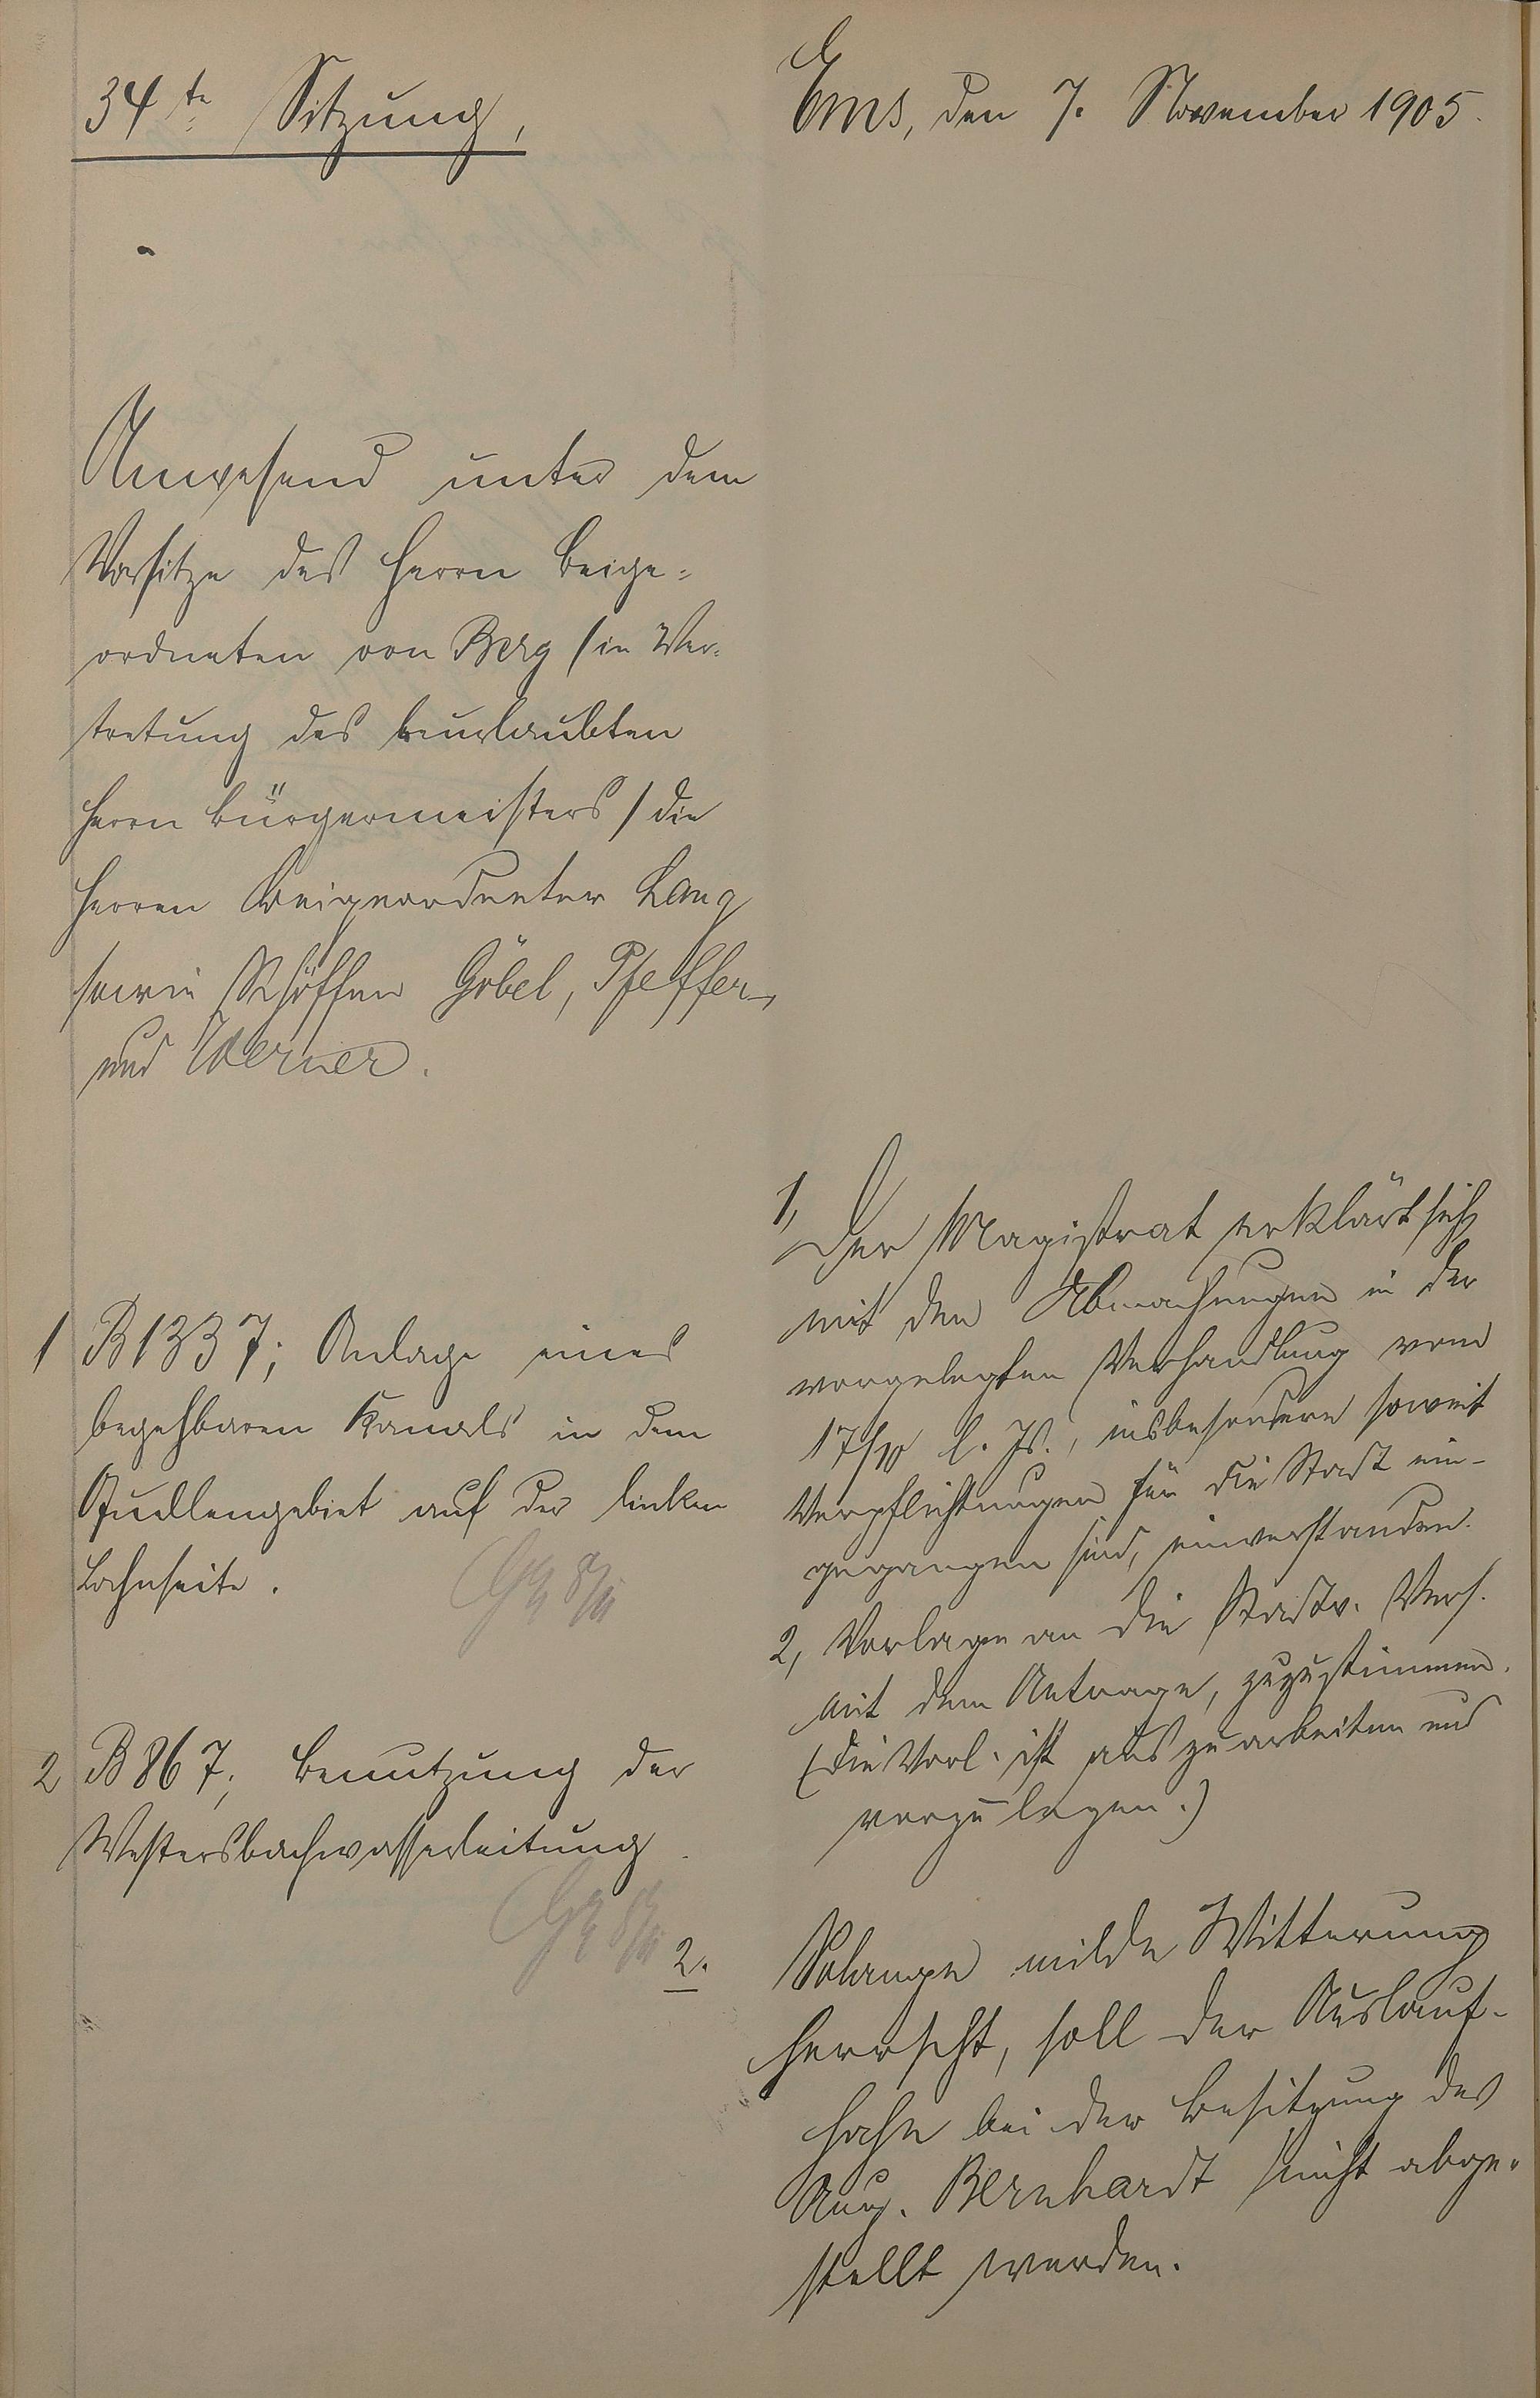 34te Sitzung,
Ems, den 7. November 1905.
Anwesend unter dem
Vorsitze des Herrn Beige=
ordneten von Berg (in Ver=
tretung des beurlaubten
Herrn Bürgermeisters) die
Herren Beigeordneter Lang
sowie Schöffen Göbel, Pfeffer
und Werner.
1 B 1337; Anlage eines
begehbaren Kanals in dem
Quellengebiet auf der linken
Lahnseite.
8/11
2 B 867; Benutzung der
Westersbachwasserleitung.
8/11
1, Der Magistrat erklärt sich
mit den Abmachungen in der
vorgelegten Verhandlung vom
17/10 l. Js., insbesondere soweit
Verpflichtungen für die Stadt ein-
gegangen sind, einverstanden.
2, Vorlage an die Stadtv. Vers.
mit dem Antrage, zuzustimmen.
(Die Vorl. ist auszuarbeiten und
vorzulegen.)
2. Solange milde Witterung
herrscht, soll der Auslauf-
hahn bei der Besitzung des
Aug. Bernhardt nicht abge-
stellt werden.